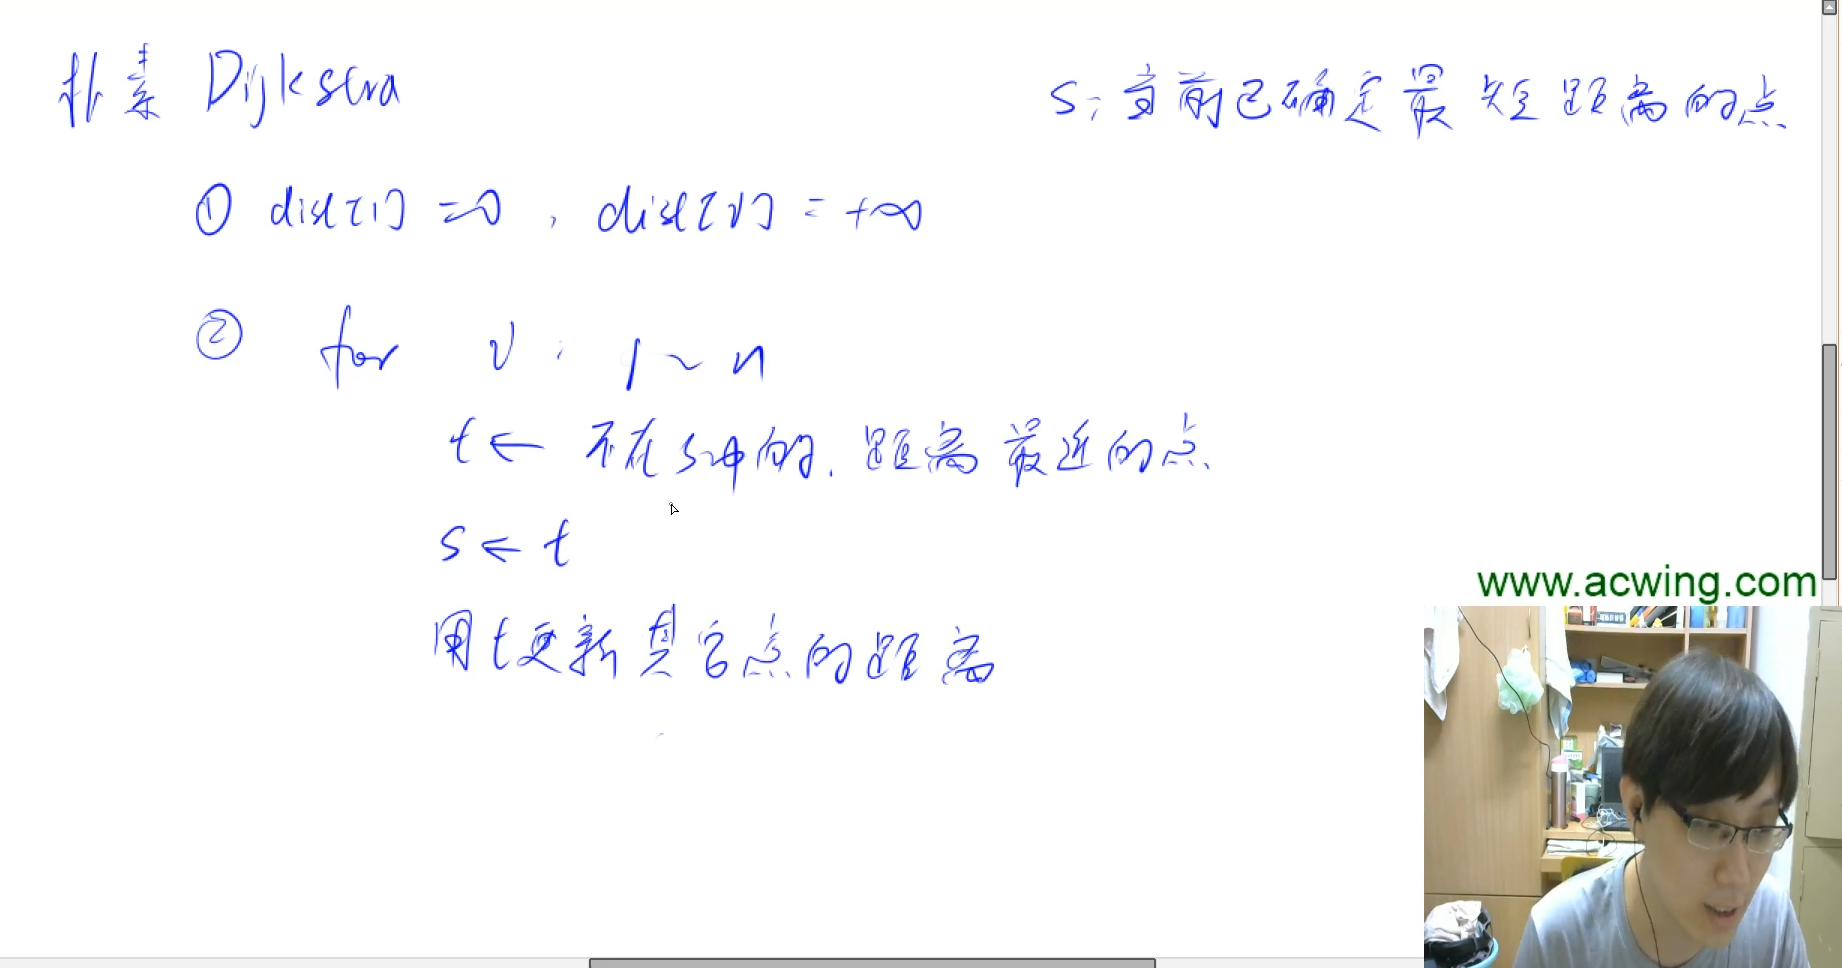 朴素 Dijkstra
s: 当前已确定最短距离的点
① dist[1] = 0, dist[i] = +∞
② for i: 1 ~ n
t ← 不在s中的, 距离最近的点
s ← t
用t更新其它点的距离
www.acwing.com